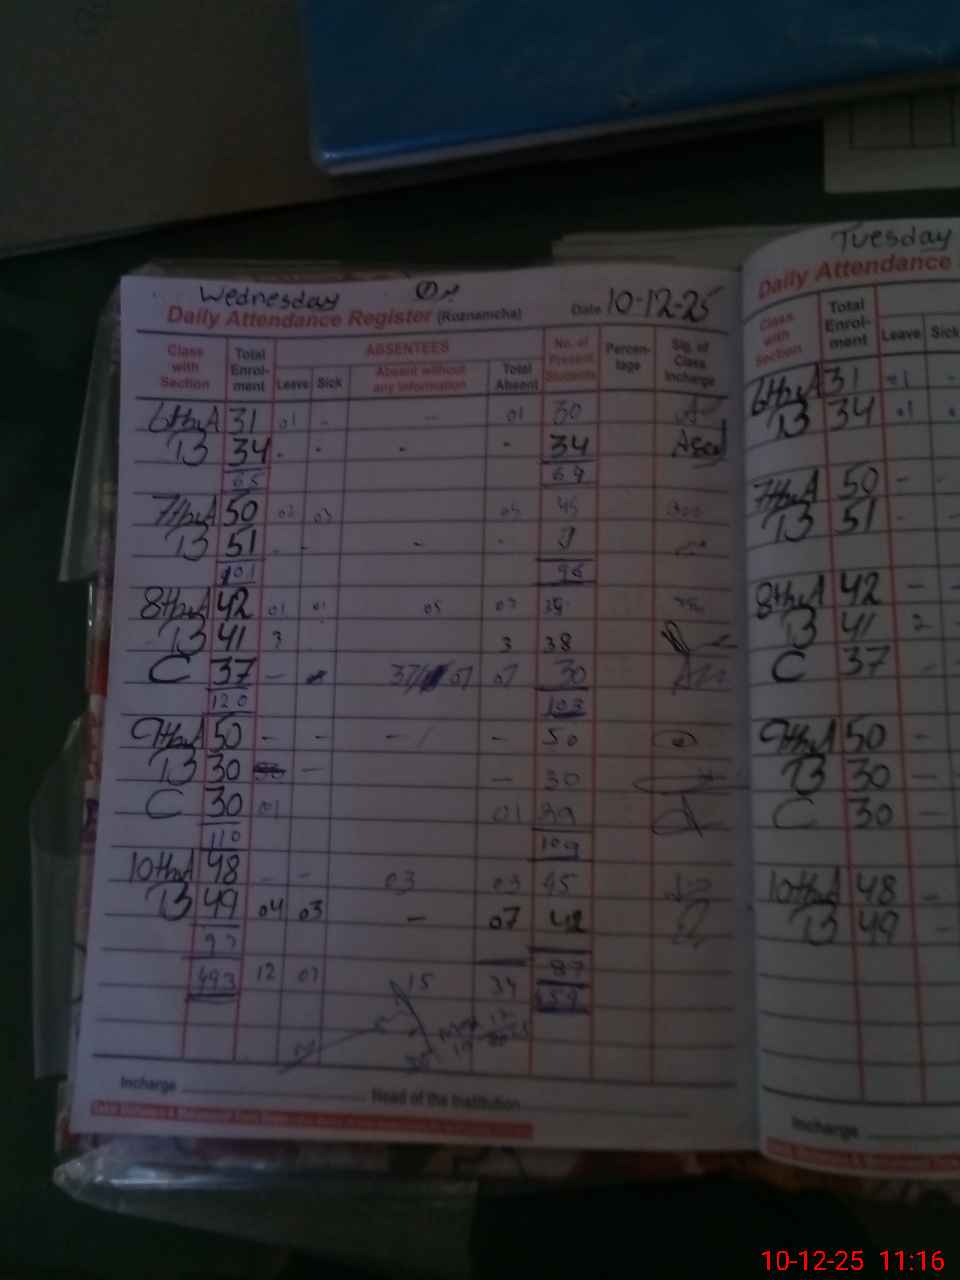 Wednesday
Daily Attendance Register (Roznamcha) Date 10-12-25
Class with Section Total Enrol-ment ABSENTEES No. of Present Students Percen-tage Sig. of Class Incharge
Leave Sick Absent without any information Total Absent
6th A 31 01 - - 01 30
B 34 - - - - 34
65
7th A 50 03 05 45
B 51 - - - -
101 96
8th A 42 01 01 05 07 35
B 41 3 3 38
C 37 - 07 07 30
120 103
9th A 50 - - - - 50
B 30 - - 30
C 30 01 01
110 109
10th A 48 - - 03 03 45
B 49 04 03 - 07 42
97 87
493 12 07 15 34 459
Incharge Head of the Institution
Tuesday
Daily Attendance
Class with Section Total Enrol-ment Leave Sick
6th A 31 -
B 34
7th A 50 - -
B 51 - -
8th A 42 - -
B 41 2 -
C 37 - -
9th A 50 -
B 30 -
C 30 -
10th A 48 -
B 49 -
Incharge
10-12-25 11:16